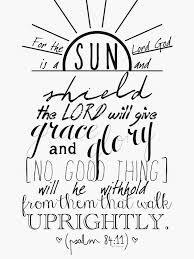 For the SUN Lord God
is a and
shield
the LORD will give
grace
and glory
[NO, GOOD THING]
will he withhold
from them that walk
UPRIGHTLY.
(psalm 84:11)